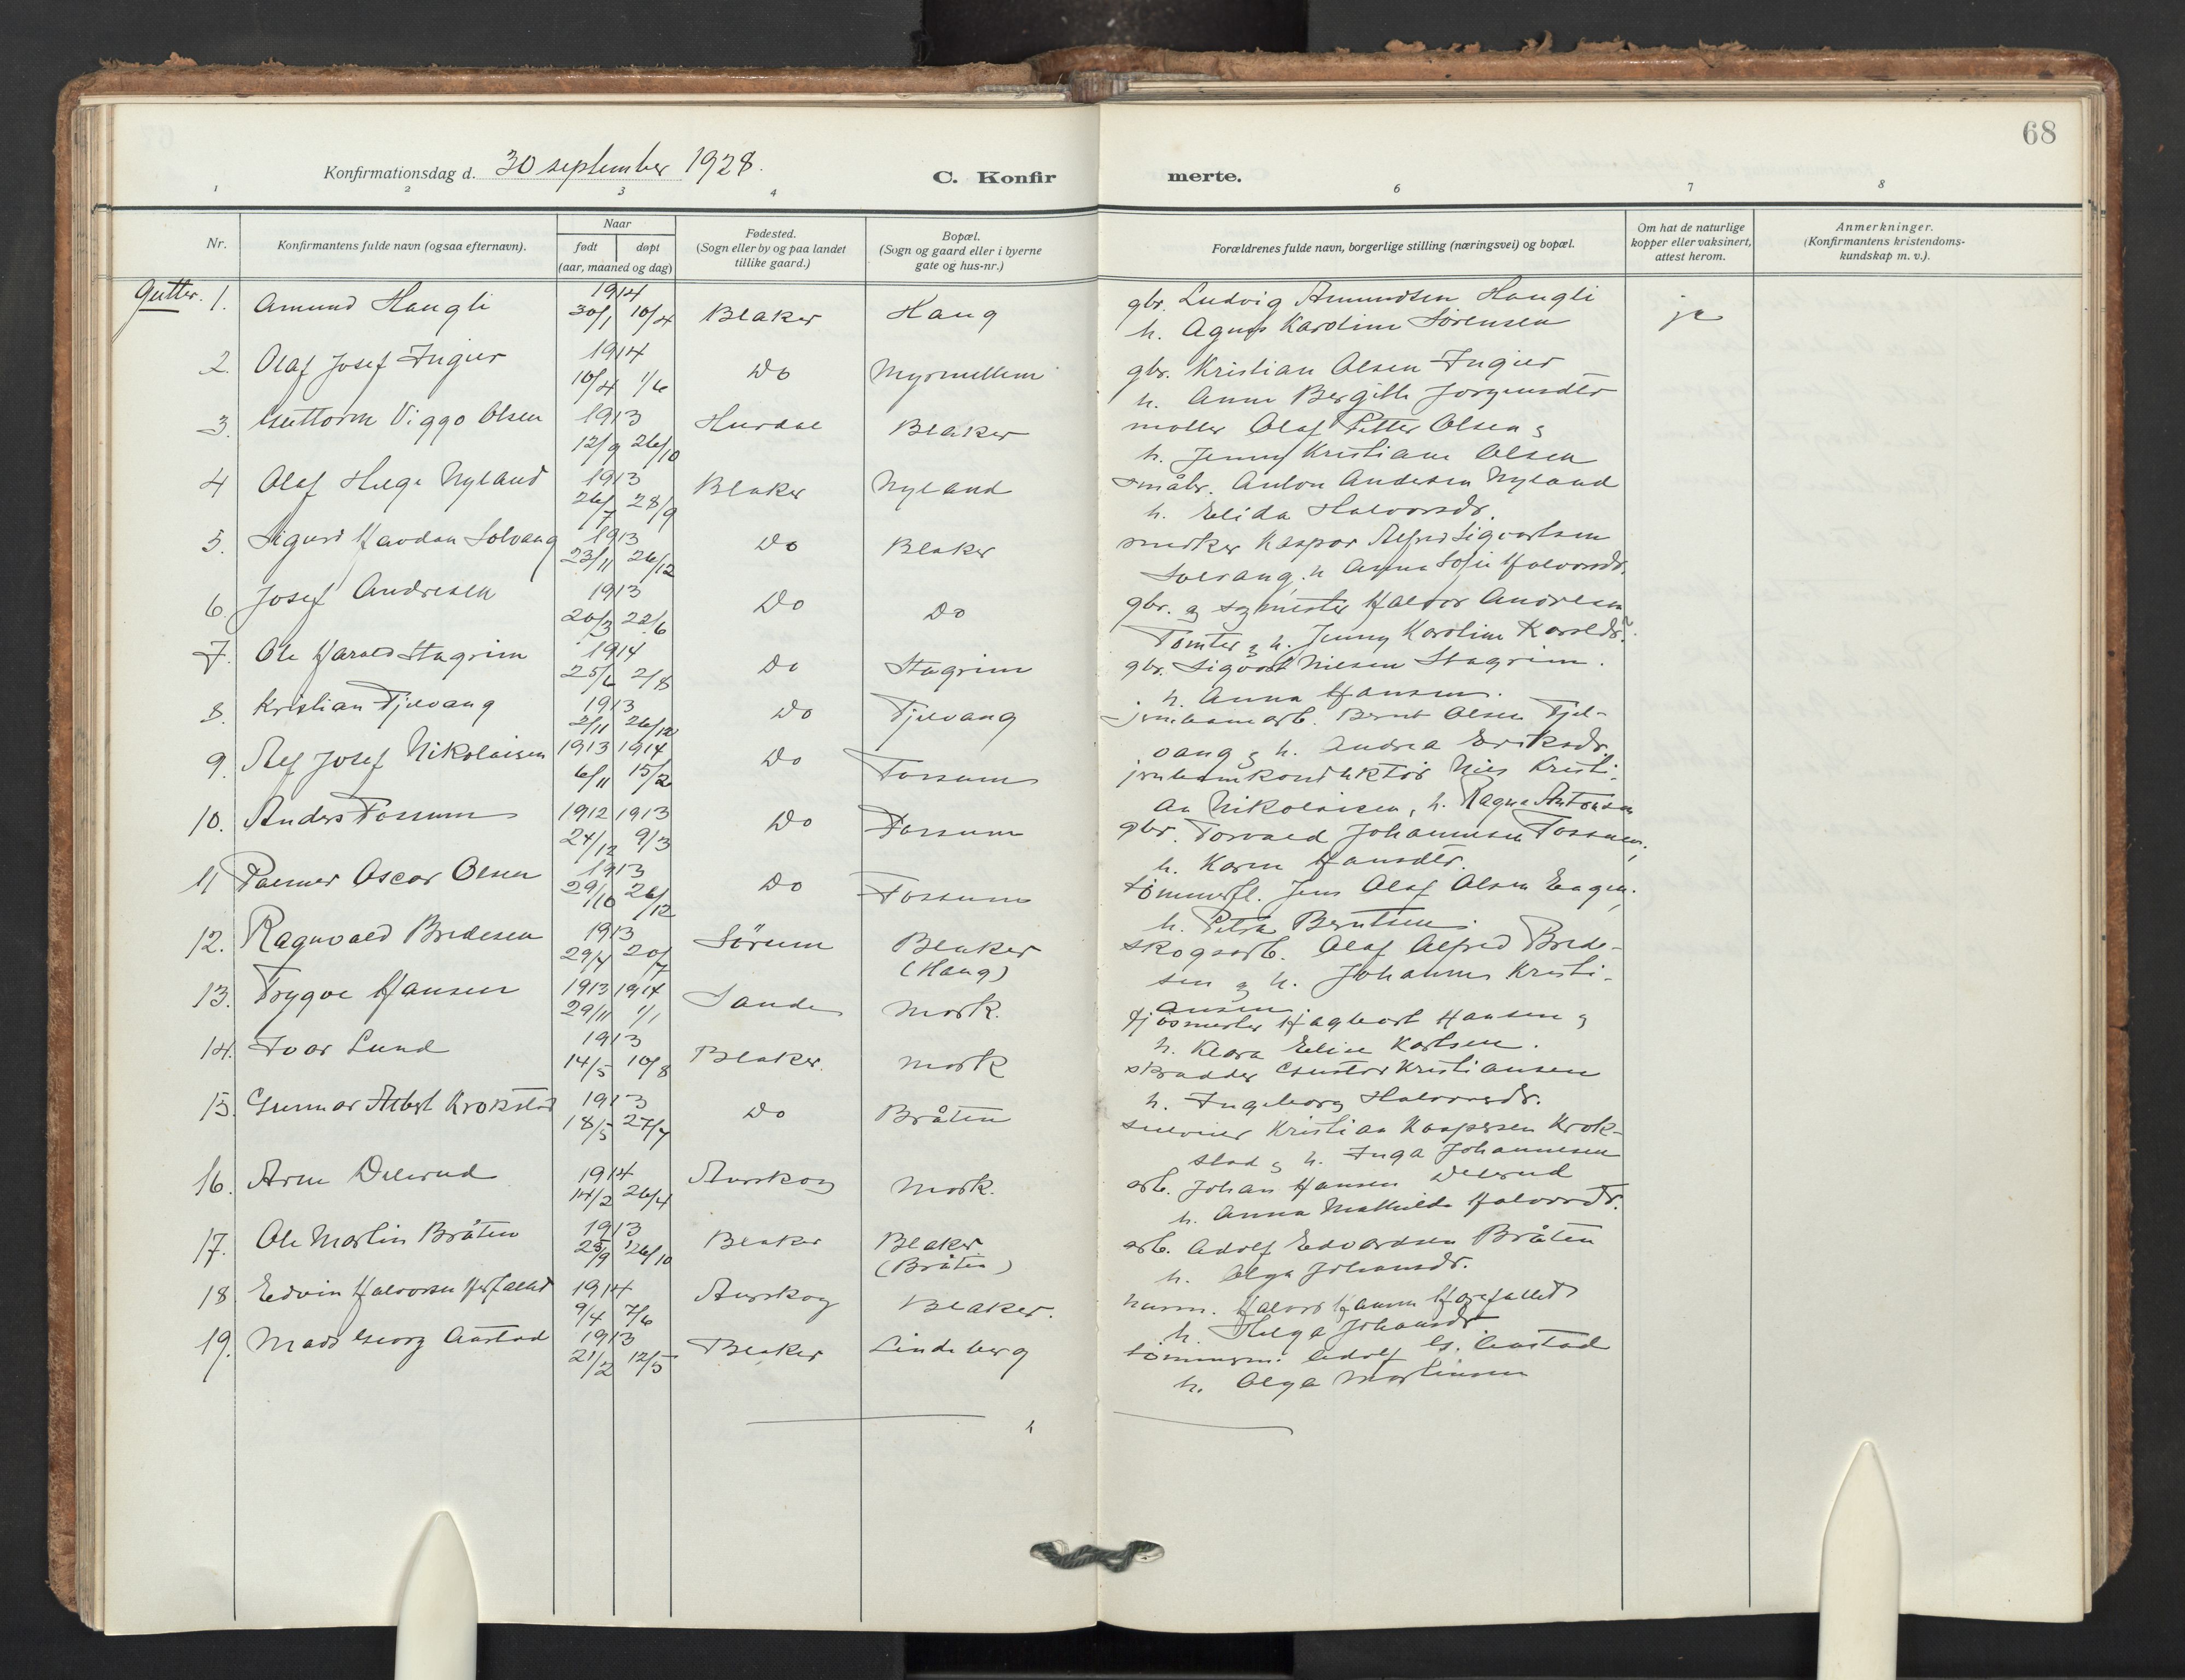 68
Konfirmationsdag d. 30 september 1928.
C. Konfirmerte.
1 2 3 4 6 7 8
Nr.
Konfirmantens fulde navn (ogsaa efternavn).
Naar
født døpt
(aar, maaned og dag)
Fødested.
(Sogn eller by og paa landet
tillike gaard.)
Bopæl.
(Sogn og gaard eller i byerne
gate og hus-nr.)
Forældrenes fulde navn, borgerlige stilling (næringsvei) og bopæl.
Om hat de naturlige
kopper eller vaksinert,
attest herom.
Anmerkninger.
(Konfirmantens kristendoms-
kundskap m. v.).
Gutter. 1. Amund Haugli 1914 30/1 10/4 Blaker Haug gbr. Ludvig Amundsen Haugli ja
h. Agnes Karoline Sørensen
2. Olaf Josef Ingier 1914 10/4 1/6 Do Myrmellem gbr. Kristian Olsen Ingier
h. Anne Bergitte Jørgensdtr
3. Guttorm Viggo Olsen 1913 12/9 26/10 Hurdal Blaker møller Olaf Petter Olsen og
h. Jenny Kristiane Olsen
4 Olaf Helge Nyland 1913 26/7 28/9 Blaker Nyland småbr. Anton Andersen Nyland
h. Elida Halvorsdr.
5. Sigurd Havdan Solvang 1913 23/11 26/12 Do Blaker snedker Kaspar Alfred Sigvartsen
Solvang, h. Anna Sofie Halvorsdr.
6. Josef Andresen 1913 20/3 22/6 Do Do gbr. og Halvor Andresen
Tomter og h. Jenny Karoline
7. Ole Harald Stagrim 1914 25/6 2/8 Do Stagrim gbr. Sigvart Nilsen Stagrim.
h. Anna Hansen.
8. Kristian Fjelvang 1913 2/11 26/12 Do Fjelvang jernbanearb. Bernt Olsen Fjel-
vang og h. Andrea Eriksdr.
9. Alf Josef Nikolaisen 1913 1914 6/11 15/2 Do Fossum jernbanekonduktør Nils Kristi-
an Nikolaisen, h. Ragna Antonsen
10. Anders Fossum 1912 1913 24/12 9/3 Do Fossum gbr. Torvald Johannesen Fossum,
h. Karen Hansdtr.
11 Palmer Oscar Olsen 1913 29/10 26/12 Do Fossum tømmerfl. Jens Olaf Olsen Engen,
h. Petra Berntsen.
12. Ragnvald Bredesen 1913 29/4 20/7 Sørum Blaker skogsarb. Olaf Alfred Brede-
(Haug) sen og h. Johanne Kristi-
ansen.
13. Trygve Hansen 1913 1914 29/11 1/1 Sande Mork. fjøsmester Hagbart Hansen og
h. Klara Eline Karlsen.
14. Ivar Lund 1913 14/5 10/8 Blaker. Mork skrædder Gustav Kristiansen
h. Ingeborg Halvorsdr.
15. Gunnar Albert Krokstad 1913 18/5 27/7 Do Bråten Kristian Kaspersen Krok-
stad og h. Inga Johannesen
16. Arne Delerud 1914 14/2 26/4 Aurskog Mork. arb. Johan Hansen Delerud
h. Anna Mathilde Halvorsdr.
17. Ole Martin Bråten 1913 25/9 26/10 Blaker Blaker. arb. Adolf Edvardsen Bråten
(Bråten) h. Olga Johansdr.
18 Edvin Halvorsen 1914 9/4 7/6 Aurskog Blaker. Halvor Hansen
h. Helga Johansdr
19. Mads Georg Aastad 1913 21/2 12/5 Blaker Lindeberg tømmerm. Adolf G. Aastad
h. Olga Martinsen